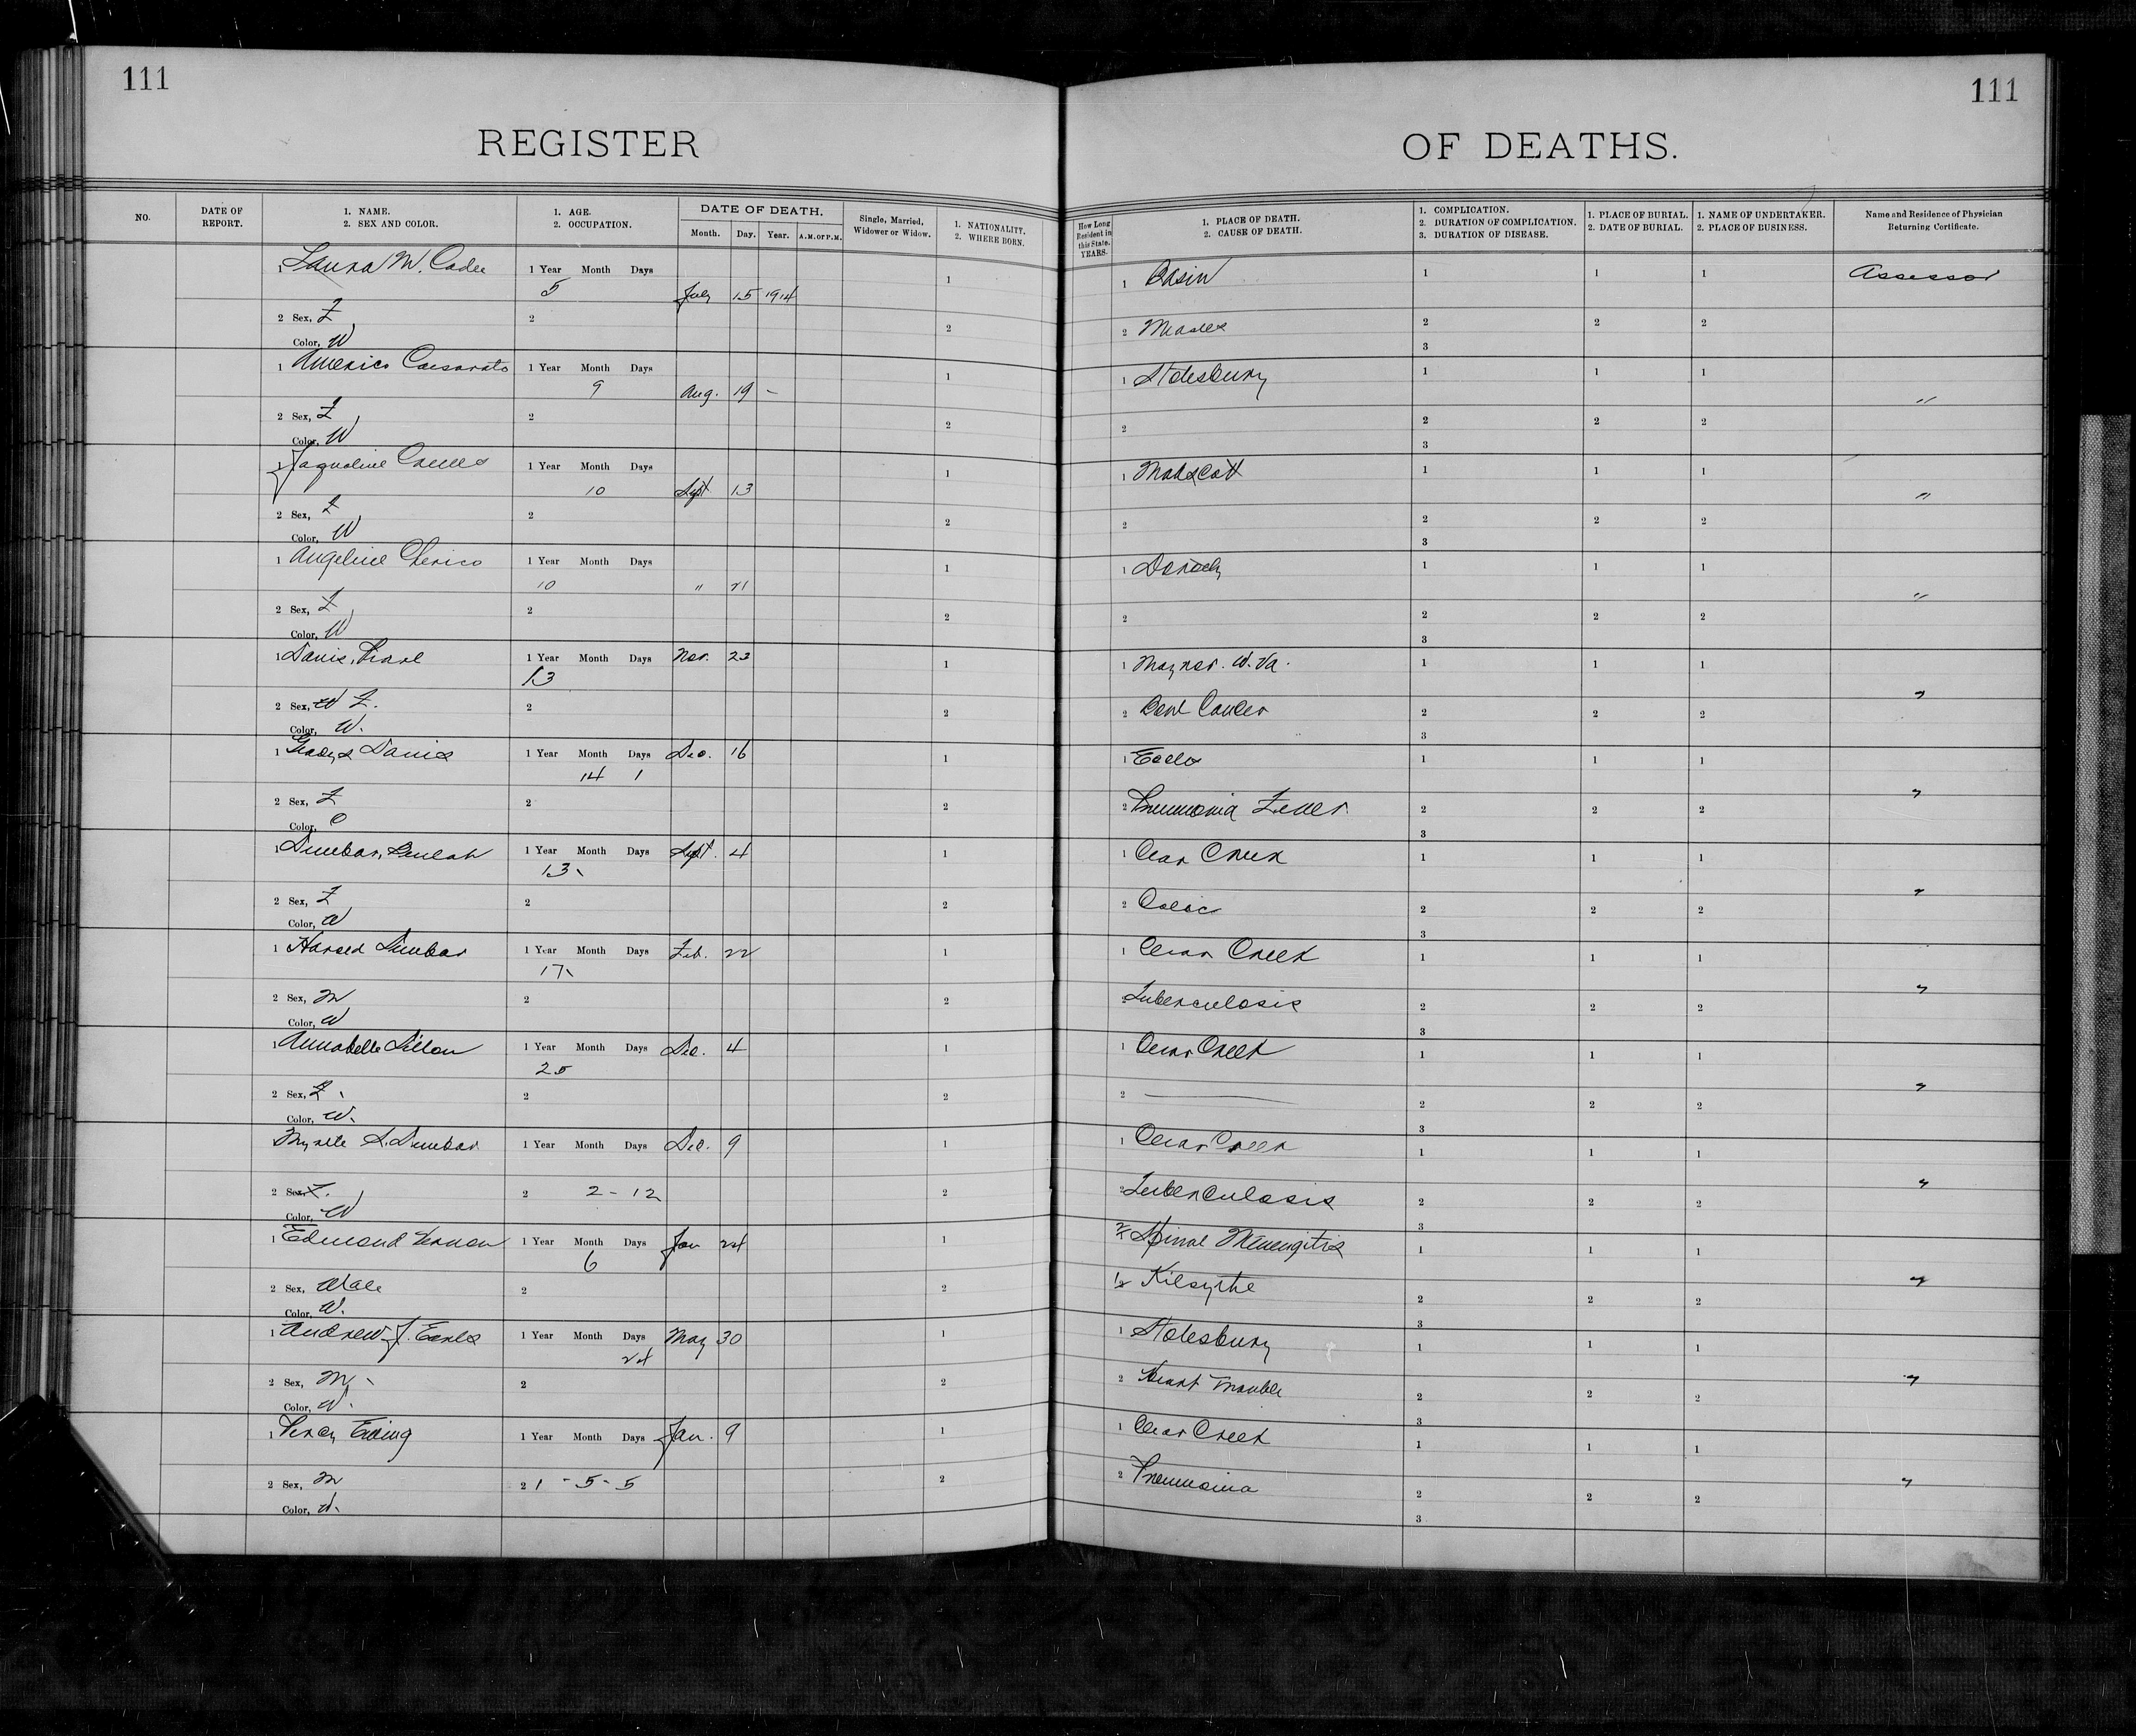 111
111
REGISTER
OF DEATHS.
NO.
DATE OF REPORT.
1. NAME.
2. SEX AND COLOR.
1. AGE.
2. OCCUPATION.
DATE OF DEATH.
Month. Day. Year. A.M. or P.M.
Single, Married, Widower or Widow.
1. NATIONALITY.
2. WHERE BORN.
How Long Resident in this State. YEARS.
1. PLACE OF DEATH.
2. CAUSE OF DEATH.
1. COMPLICATION.
2. DURATION OF COMPLICATION.
3. DURATION OF DISEASE.
1. PLACE OF BURIAL.
2. DATE OF BURIAL.
1. NAME OF UNDERTAKER.
2. PLACE OF BUSINESS.
Name and Residence of Physician Returning Certificate.
1 Laura M. Cadle 1 Year Month Days 1 1 Basin 1 1 1 Assessor
5 July 15 1914
2 Sex, F 2 2 2 Measles 2 2 2
Color, W 3
1 Americo 1 Year Month Days 1 1 Stotesbury 1 1 1
9 Aug. 19 - "
2 Sex, F 2 2 2 2 2 2
Color, W 3
1 Jaqueline 1 Year Month Days 1 1 Mabscott 1 1 1
10 Sept 13 "
2 Sex, F 2 2 2 2 2 2
Color, W 3
1 Angeline Cherico 1 Year Month Days 1 1 1 1 1
10 " 21 "
2 Sex, F 2 2 2 2 2 2
Color, W 3
1 Davis, Pearl 1 Year Month Days Nov. 23 1 1 Maynor. W. Va. 1 1 1
13
2 Sex, W F. 2 2 2 2 2 2 "
Color, W. 3
1 Gladys Davis 1 Year Month Days Dec. 16 1 1 Eccles 1 1 1
14 1
2 Sex, F 2 2 2 Pneumonia Fever. 2 2 2 "
Color, C 3
1 Dunbar, Beulah 1 Year Month Days Sept. 4 1 1 Clear Creek 1 1 1
13
2 Sex, F 2 2 2 Colic 2 2 2 "
Color, W 3
1 Harold Dunbar 1 Year Month Days Feb. 22 1 1 Clear Creek 1 1 1
17
2 Sex, M 2 2 2 Tuberculosis 2 2 2 "
Color, W 3
1 Annabelle Dillon 1 Year Month Days Dec. 4 1 1 Clear Creek 1 1 1
25
2 Sex, F 2 2 2 — 2 2 2 "
Color, W. 3
Myrtle S. Dunbar 1 Year Month Days Dec. 9 1 1 Clear Creek 1 1 1
2 Sex, F. 2 2 - 12 2 2 Tuberculosis 2 2 2 "
Color, W 3
1 Edmond Vernon 1 Year Month Days Jan 24 1 2 Spinal Menengitis 1 1 1
6
2 Sex, Male 2 2 1 Kilsythe 2 2 2 "
Color, W. 3
1 Andrew J. Earls 1 Year Month Days May 30 1 1 Stotesbury 1 1 1
24
2 Sex, M 2 2 2 Heart Trouble 2 2 2 "
Color, W. 3
1 Percy Ewing 1 Year Month Days Jan. 9 1 1 Clear Creek 1 1 1
2 Sex, M 2 1 - 5 - 5 2 2 Pneumonia 2 2 2 "
Color, W. 3